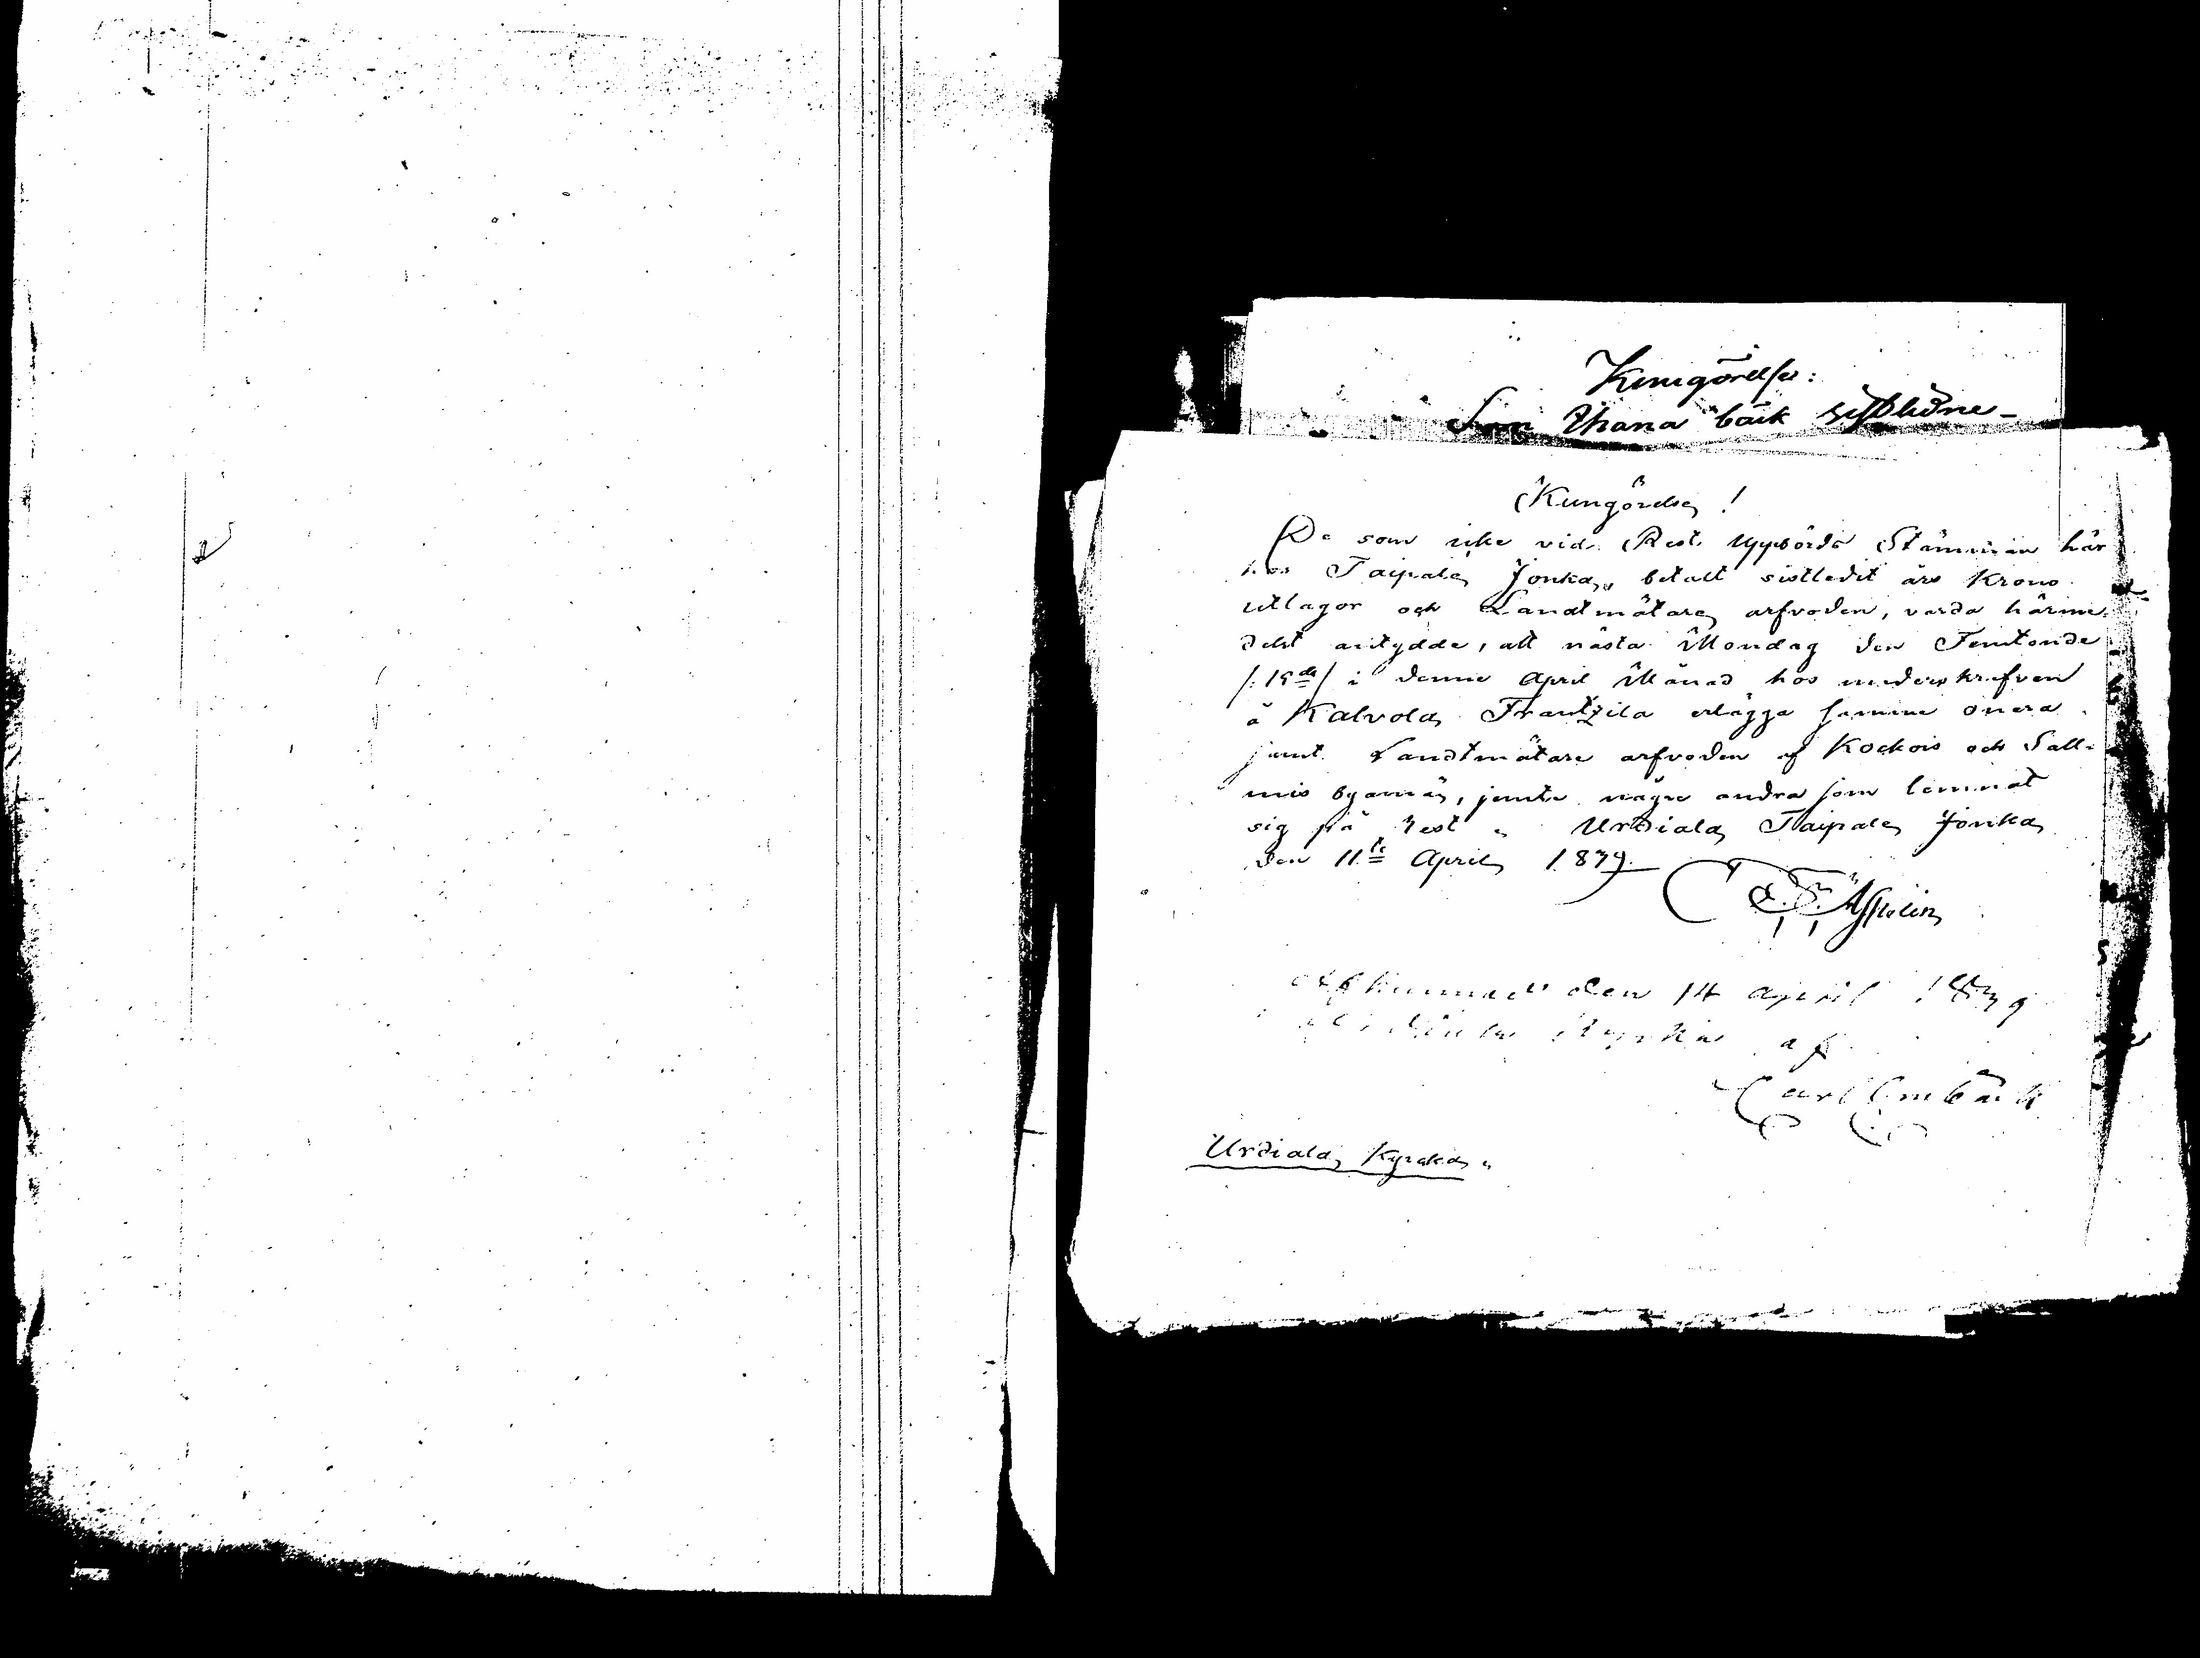 Kungörelse:
bäck sistlidne-
Kungörelse!
De som icke vid Rest Uppbörds Stämman här
hos Taipale Jonka, betalt sistledit års Krono
utlagor och Landtmätare arfvoden, varda härme-
delst antydde, att nästa Mondag den Femtonde
/:15de/ i denne April Månad hos underskrefven
å Kalvola Frantzila erlägga samme onera
jemt Landtmätare arfvoden af Kockois och Sall-
mis byamän, jemte några andra som lemnat
sig på rest. Urdiala Taipale Jonka
den 11te April 1839.
Aspelin
Afkunnad den 14 april 1839
Kyrka af
Carl Embäck
Urdiala Kyrcka.